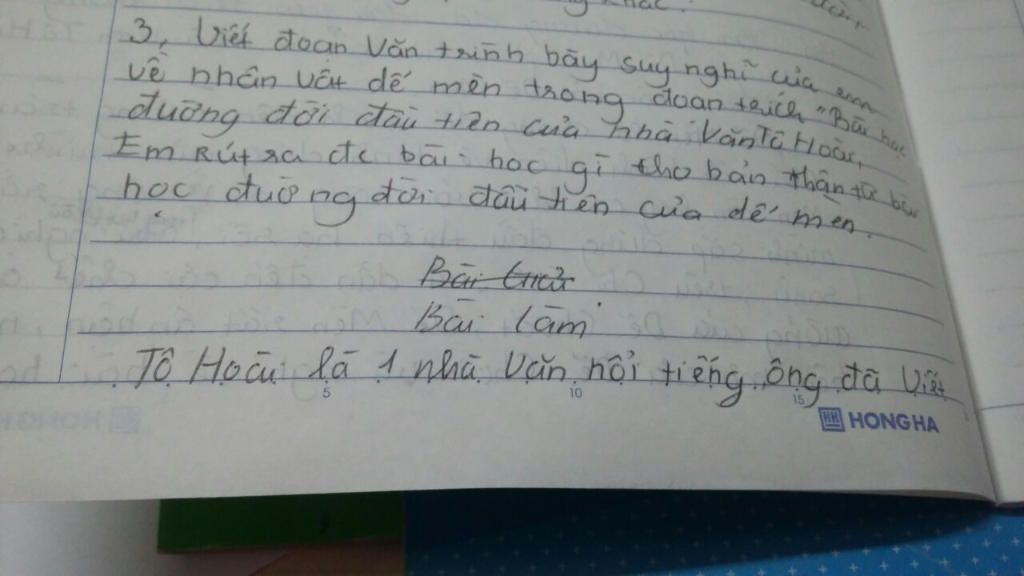 3, Viết đoạn văn trình bày suy nghĩ của em
về nhân vật dế mèn trong đoạn trích "Bài học
đường đời đầu tiên của nhà văn Tô Hoài,
Em Rút ra đc bài học gì cho bản thân từ bài
học đường đời đầu tiên của dế mèn.
Bài làm
Tô Hoài là 1 nhà văn nổi tiếng ông đã viết
5 10 15
HONG HA